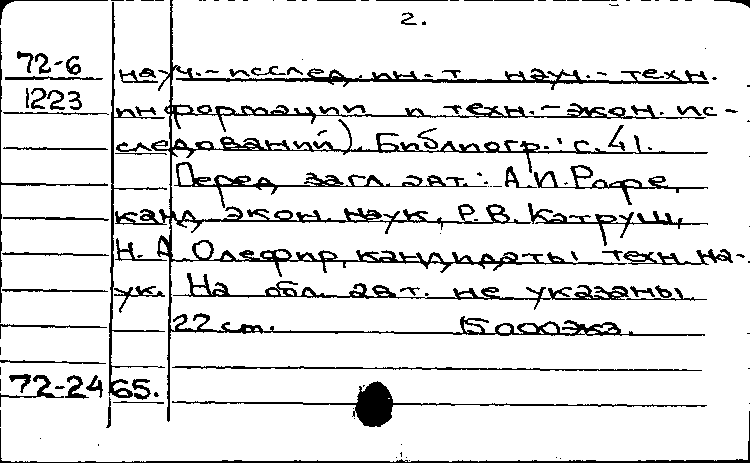 2.
72-6 науч.-исслед. ин-т науч.-техн.
1223 информации и техн.-экон. ис-
следований). Библиогр.: с. 41.
Перед загл. авт.: А.И. Рофе,
канд. экон. наук, Р.В. Катруш,
Н. А. Олефир, кандидаты техн. на-
ук. На обл. авт. не указаны.
22 см. 15000экз.
72-24 65.